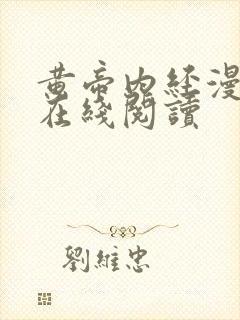 黄帝内经漫
在綫閲讀
劉維忠